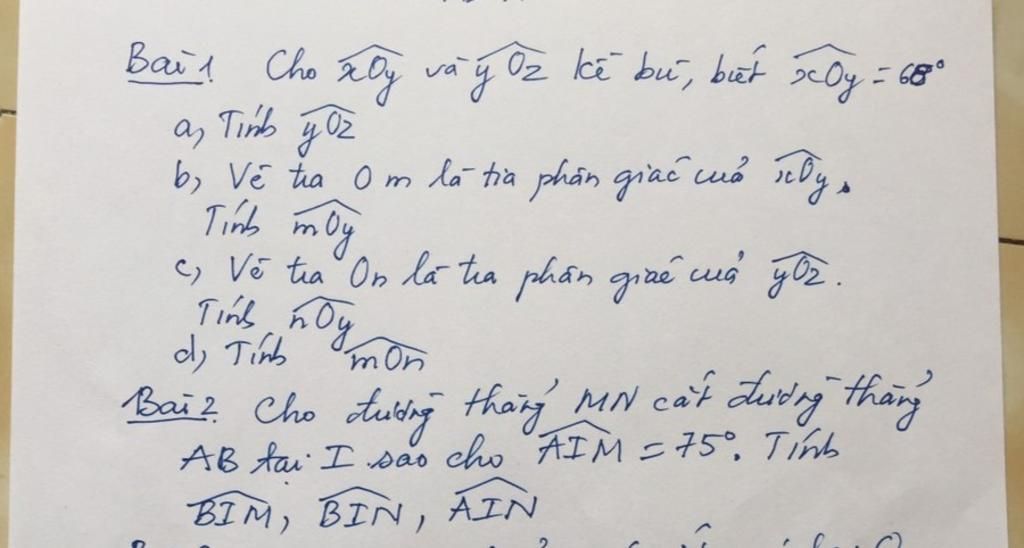 Bài 1. Cho xOy và yOz kề bù, biết xOy = 68°
a, Tính yOz
b, Vẽ tia Om là tia phân giác của xOy.
Tính mOy
c, Vẽ tia On là tia phân giác của yOz.
Tính nOy
d, Tính mOn
Bài 2. Cho đường thẳng MN cắt đường thẳng
AB tại I sao cho AIM = 75°. Tính
BIM, BIN, AIN